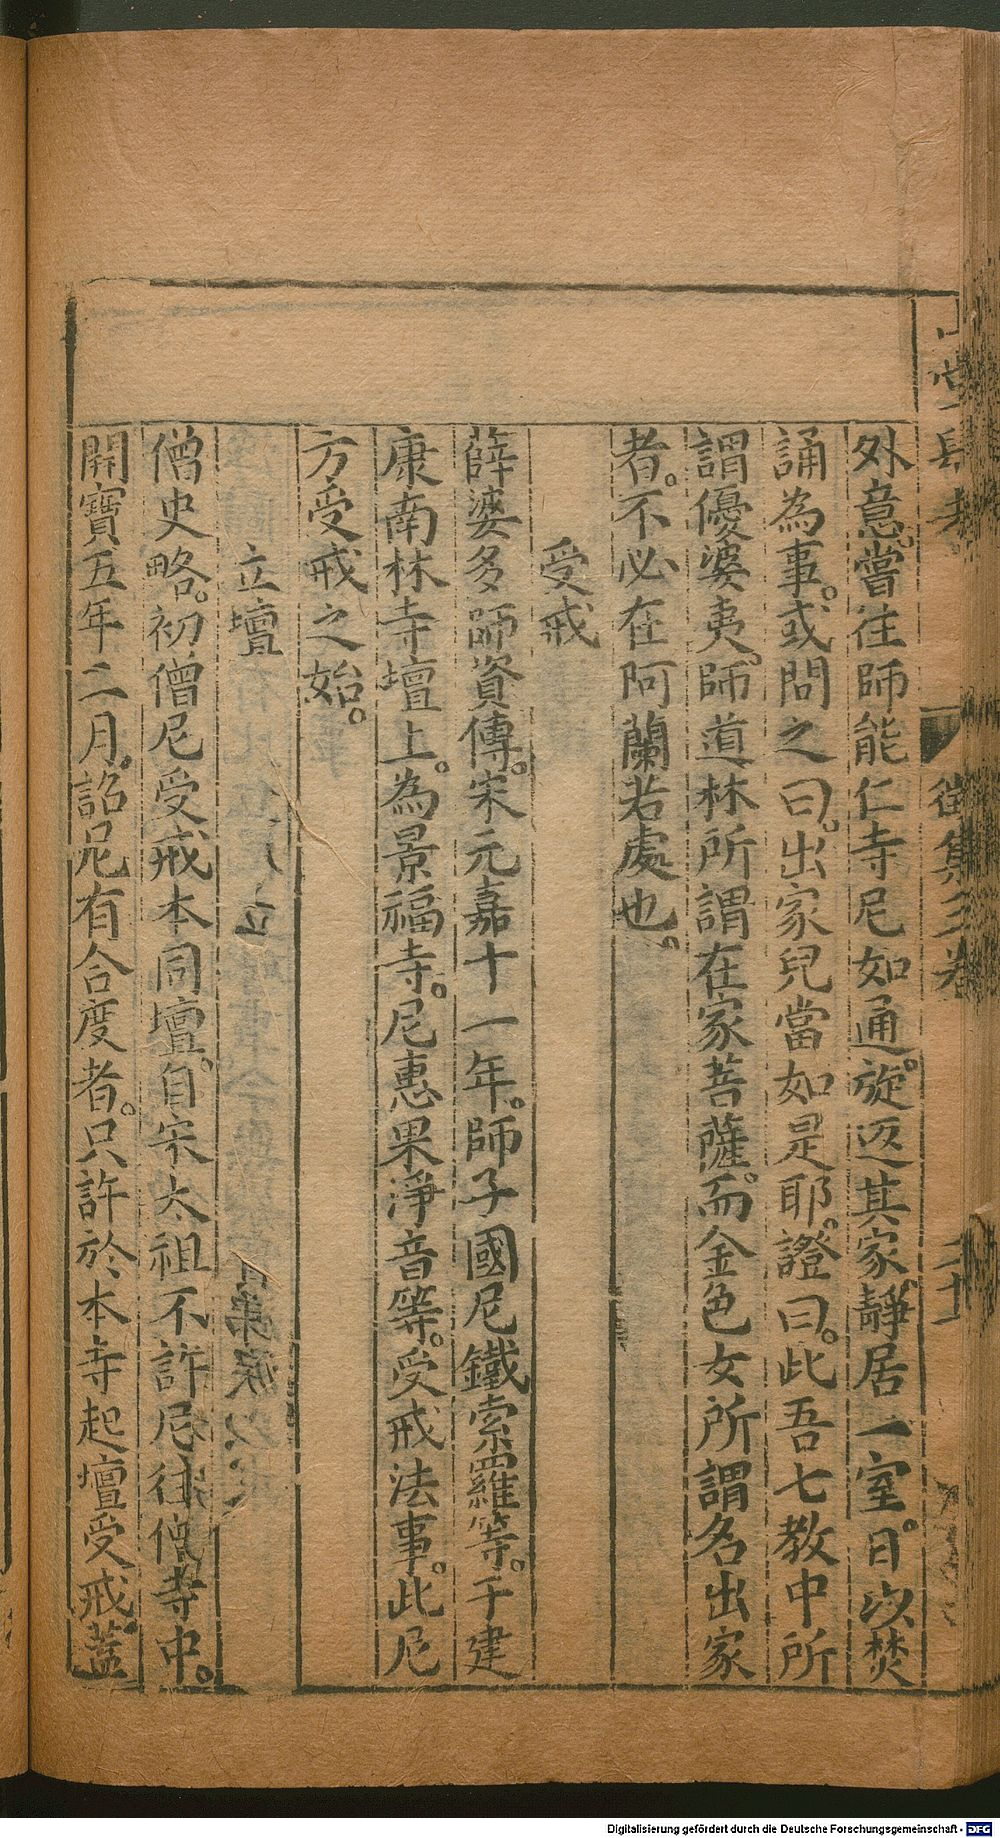 山堂肆考
徵集三卷
二十一
外意。嘗往師能仁寺尼如通。旋返其家靜居一室。日以焚
誦為事。或問之曰。出家兒當如是耶。證曰。此吾七教中所
謂優婆夷。師道林所謂在家菩薩。而金色女所謂名出家
者。不必在阿蘭若處也。
受戒
薛婆多師資傳。宋元嘉十一年。師子國尼鐵索羅等。于建
康南林寺壇上。為景福寺。尼惠果淨音等。受戒法事。此尼
方受戒之始。
立壇
僧史略。初僧尼受戒本同壇。自宋太祖不許尼往僧寺中。
開寶五年二月。詔尼有合度者。只許於本寺起壇受戒。蓋
Digitalisierung gefördert durch die Deutsche Forschungsgemeinschaft - DFG